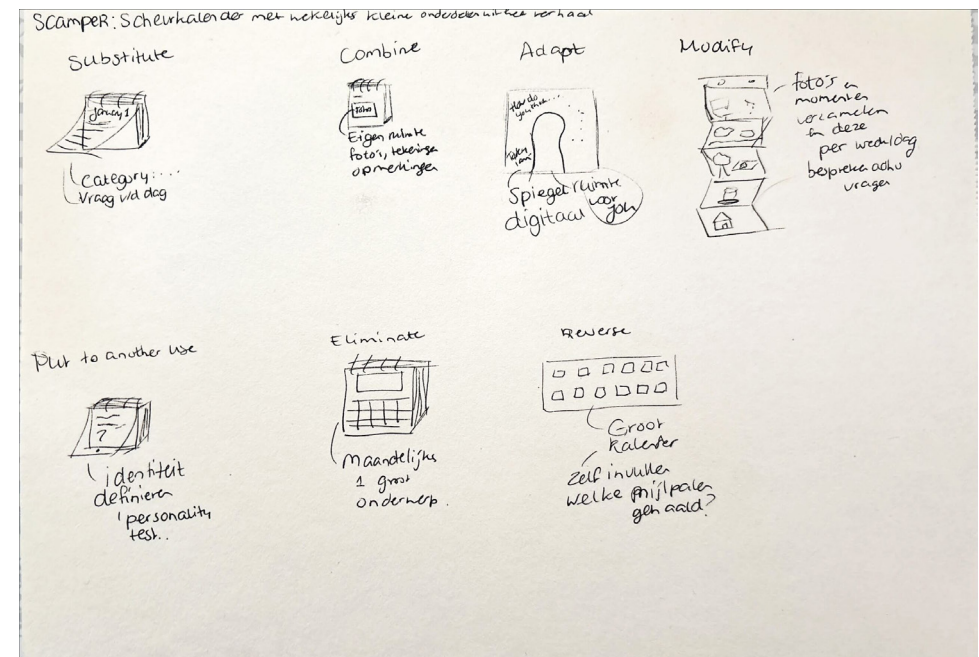 SCAMPER: Scheurkalender met wekelijks kleine onderdelen uit het verhaal
Substitute
January 1
Category:....
Vraag v/d dag
Combine
Foto
Eigen ruimte
foto's, tekeningen
opmerkingen
Adapt
How do
you think...
Spiegel ruimte
digitaal
voor
jou
Modify
foto's en
momenten
verzamelen
en deze
per weekdag
bespreken adhv
vragen
Put to another use
?
identiteit
definieren
personality
test..
Eliminate
Maandelijks
1 groot
onderwerp.
Reverse
Groot
kalender
zelf invullen
welke mijlpalen
gehaald?